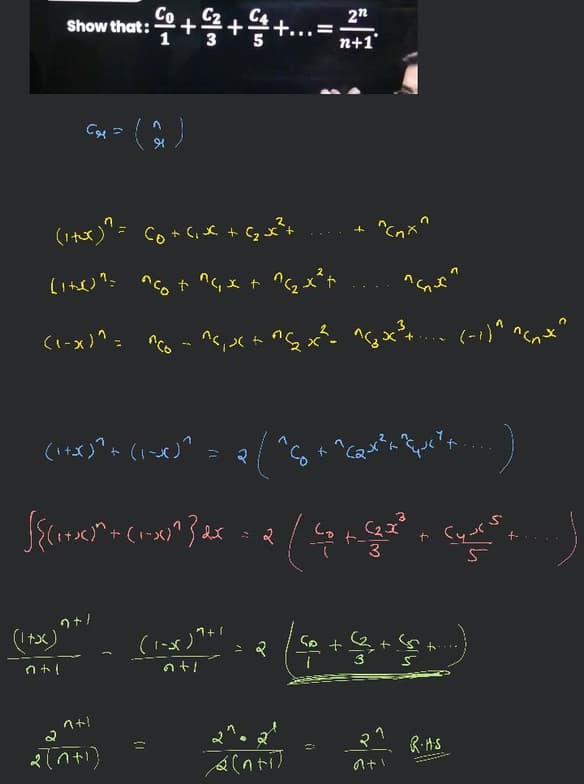 Show that: C₀/1 + C₂/3 + C₄/5 + ... = 2ⁿ/n+1.
Cᵣ = (n r)
(1+x)ⁿ = C₀ + C₁x + C₂x² + ..... + ⁿCₙxⁿ
(1+x)ⁿ = ⁿC₀ + ⁿC₁x + ⁿC₂x² + .... ⁿCₙxⁿ
(1-x)ⁿ = ⁿC₀ - ⁿC₁x + ⁿC₂x² - ⁿC₃x³ + .... (-1)ⁿ ⁿCₙxⁿ
(1+x)ⁿ + (1-x)ⁿ = 2 (ⁿC₀ + ⁿC₂x² + ⁿC₄x⁴ + .....)
∫{(1+x)ⁿ + (1-x)ⁿ} dx = 2 (C₀/1 + C₂x³/3 + C₄x⁵/5 + .....)
(1+x)ⁿ⁺¹/n+1 - (1-x)ⁿ⁺¹/n+1 = 2 (C₀/1 + C₂/3 + C₅/5 + ...)
2ⁿ⁺¹/2(n+1) = 2ⁿ·2¹/2(n+1) = 2ⁿ/n+1 R.H.S